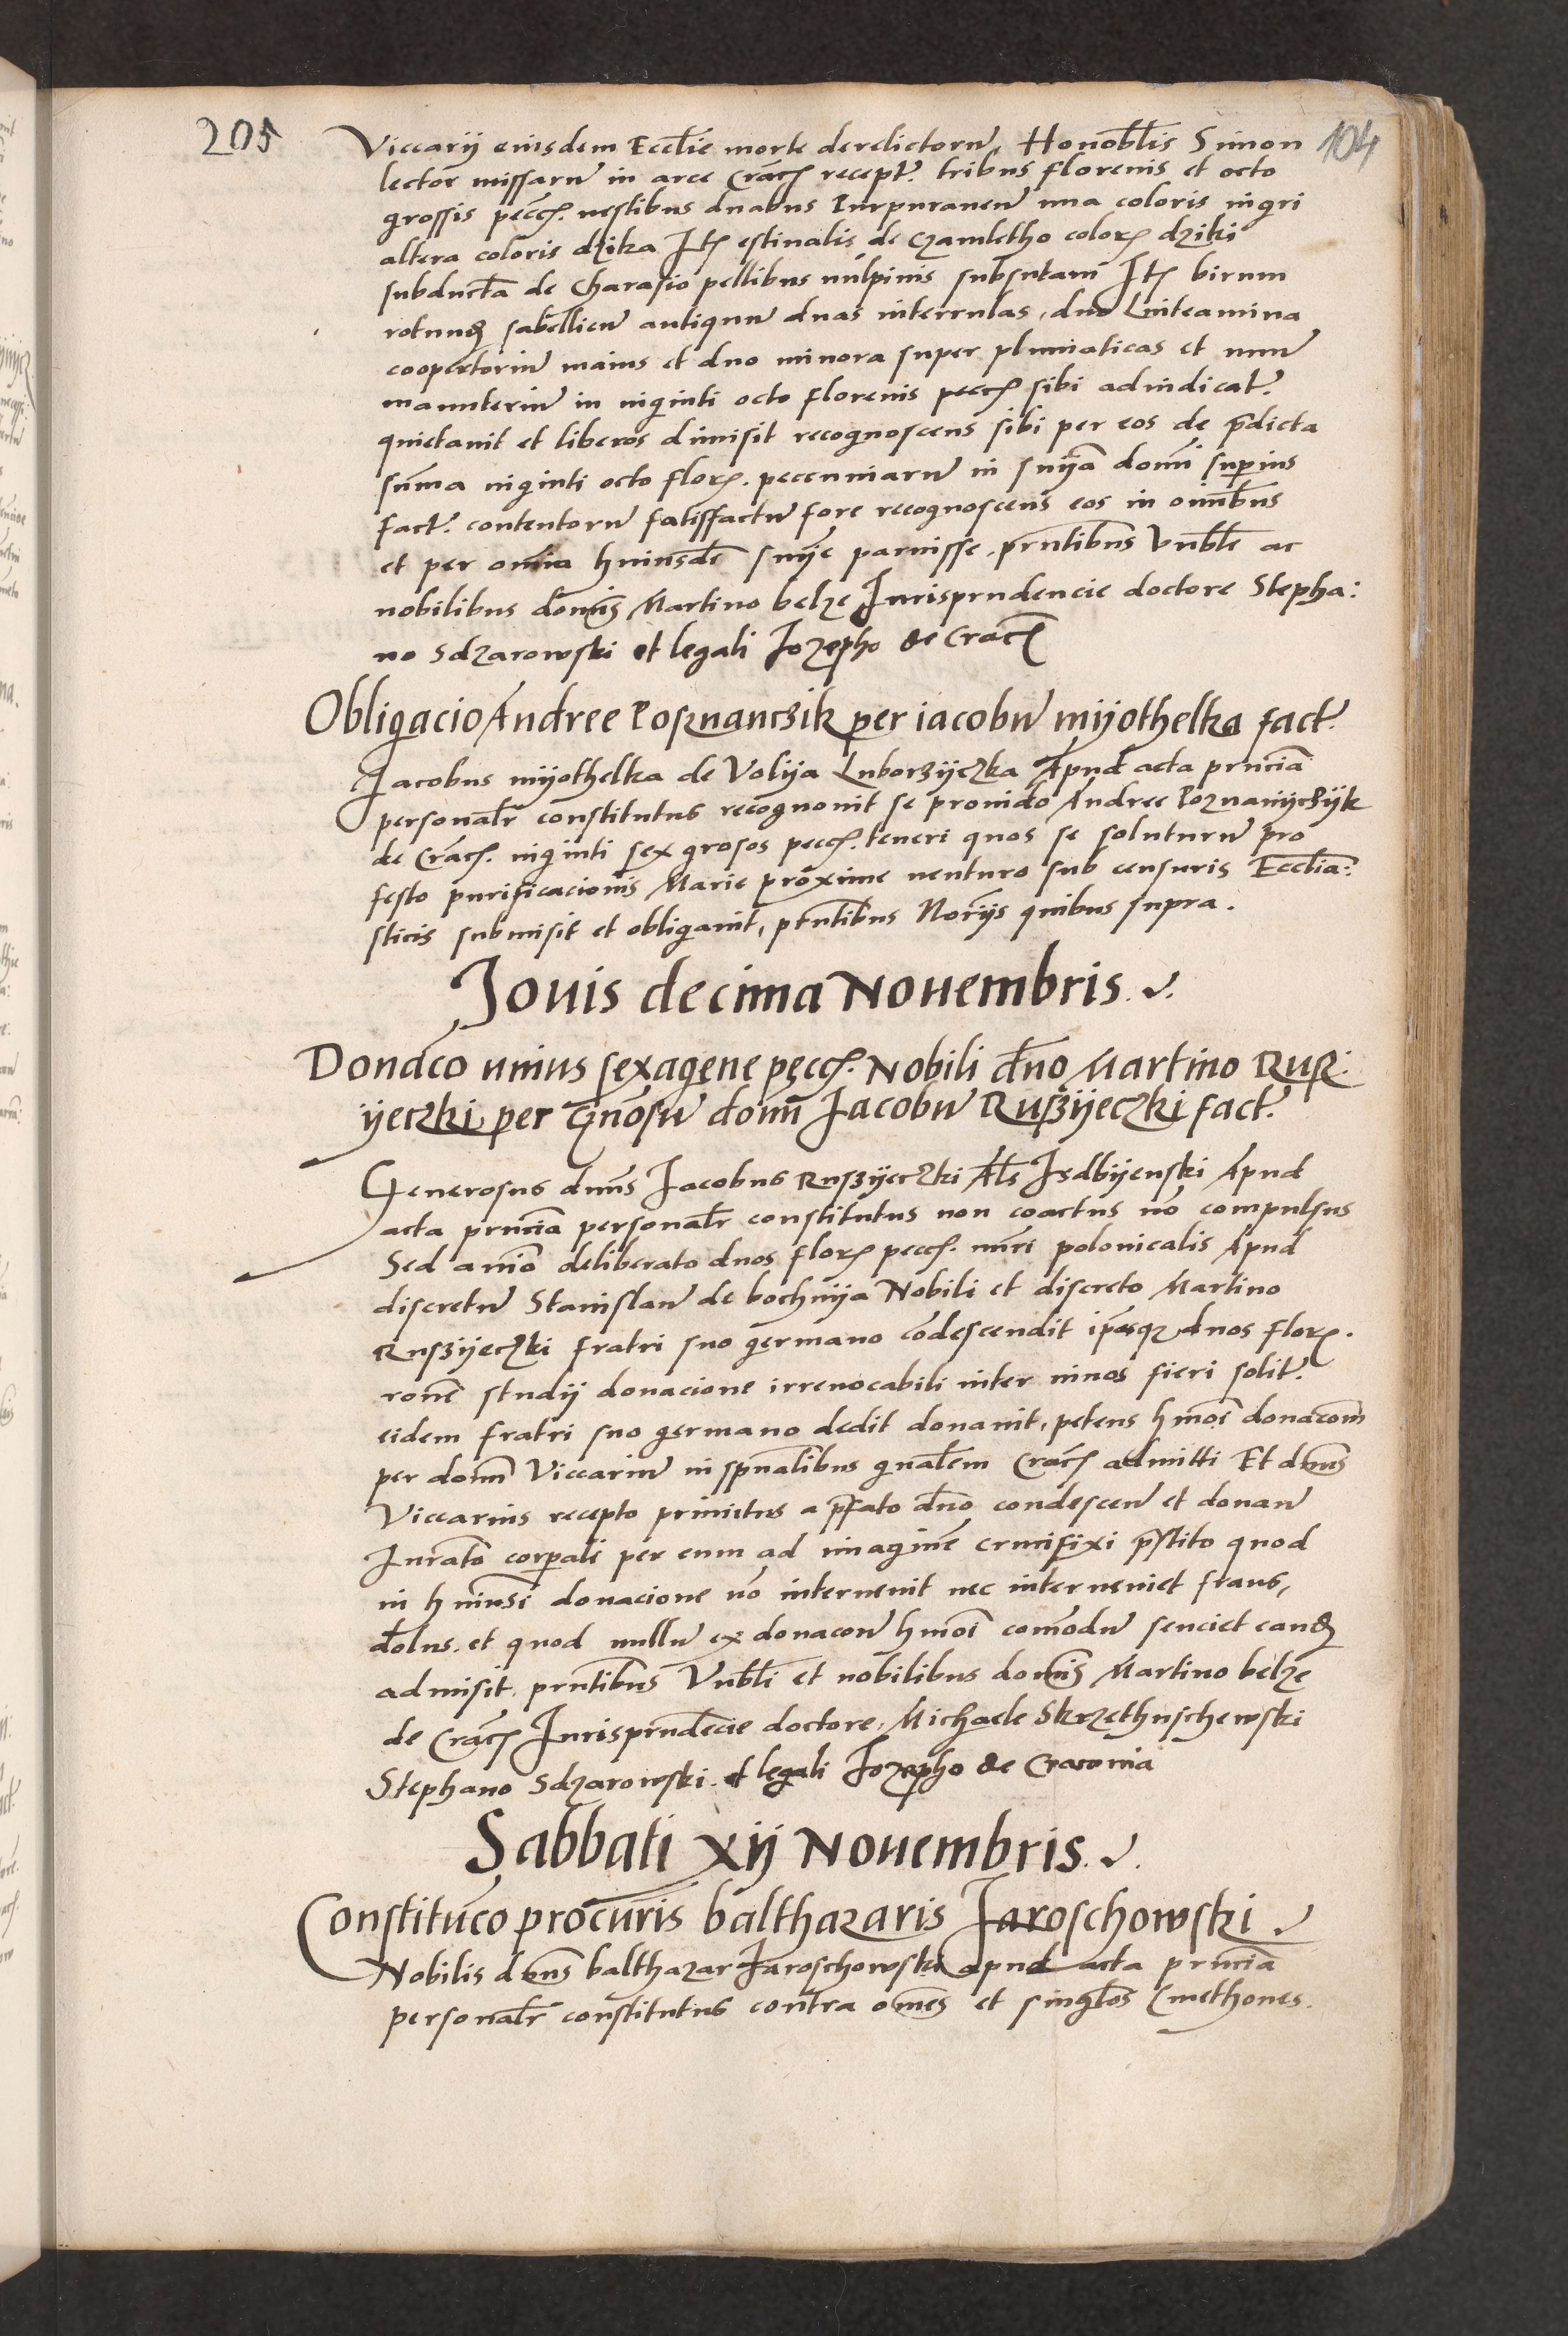 205
104
Viccarij eiusdem Eccl̄ie morte derelictorū, Honob̄lis Simon
lector missarū in arce Crac̄ recept̃. tribus florenis et octo
grossis pecc̄. uestibus duabus Purpuraneū una coloris nigri
altera coloris dzika Itē estiualis de Czamletho colorē dziki
subduct̄a de Charasio pellibus uulpinis subsutam Itē birum
rotundū sabellicū antiquū duas interrulas, duo Linteamina
coopertoriū maius et duo minora super plumaticas et unū
manuteriū in uiginti octo florenis pecc̄ sibi adiudicat̃.
quietauit et liberos dimisit recognoscens sibi per eos de p̄dicta
sum̄a uiginti octo florē. pecenniarū in sn̄ija domī superius
fact̃. contentorū satisfactū fore recognoscens eos in omībus
et per om̄ia huiusdē sn̄ije paruisse, p̄ntibus Vnb̄le ac
nobilibus domīs Martino belze Jurisprudencie doctore Stepha:
no Sdzarowski et legali Jozepho de Crac̄
Obligacio Andree Posznanczik per iacobū mijothelka fact̃.
Jacobus mijothelka de Volija Luborzijczka Apud acta pr̄ncia
personal̄r constitutus recognouit se prouido Andree Poznanijczijk
de Crac̄. uiginti sex grosos pecc̄. teneri quos se soluturū pro
festo purificacionis Marie proxime uenturo sub censuris Eccl̄ia:
sticis submisit et obligauit, p̄ntibus Nōrijs quibus supra.
Jouis decima Nouembris.
Donāco unius sexagene pecc̄. Nobili dn̄o Martino Rusz:
ijeczki per Gn̄osū dom̄ Jacobū Ruszijeczki fact̃.
Generosus dn̄s Jacobus Ruszijeczki Al̄s Jsdbijenski Apud
acta pr̄ncia personal̄r constitutus non coactus nō compulsus
Sed animo deliberato duos florē pecc̄. nūri polonicalis Apud
discretū Stanislaū de bochnija Nobili et discreto Martino
Ruszijeczki fratri suo germano cōdescendit ip̄osqȝ duos florē.
ronē studij donacione irreuocabili inter uiuos fieri solit̃.
eidem fratri suo germano dedit donauit, petens hmōi donacōm
per dom̄ Viccariū in sp̄ualibus gn̄alem Crac̄ admitti Et dn̄s
Viccarius recepto primitus a p̄fato dn̄o condesceñ et donañ
Juram̄to corp̄ali per eum ad imaginē crucifixi p̄stito quod
in huiusi donacione nō interuenit nec interueniet fraus,
dolus. et quod nullū ex donacoñ hmōi com̄odū senciet eandē
admisit. p̄ntibus Vnb̄li et nobilibus domīs Martino belze
de Crac̄ Jurisprudēcie doctore, Michaele Skrzethuschewski
Stephano Sdzarowski. et legali Jozepho de Cracouia
Sabbati xij Nouembris.
Constitūco procūris balthazaris Jaroschowski
Nobilis dn̄s balthazar Jaroschowski apud acta pr̄ncia
personal̄r constitutus contra omēs et singl̄os Cmethones.